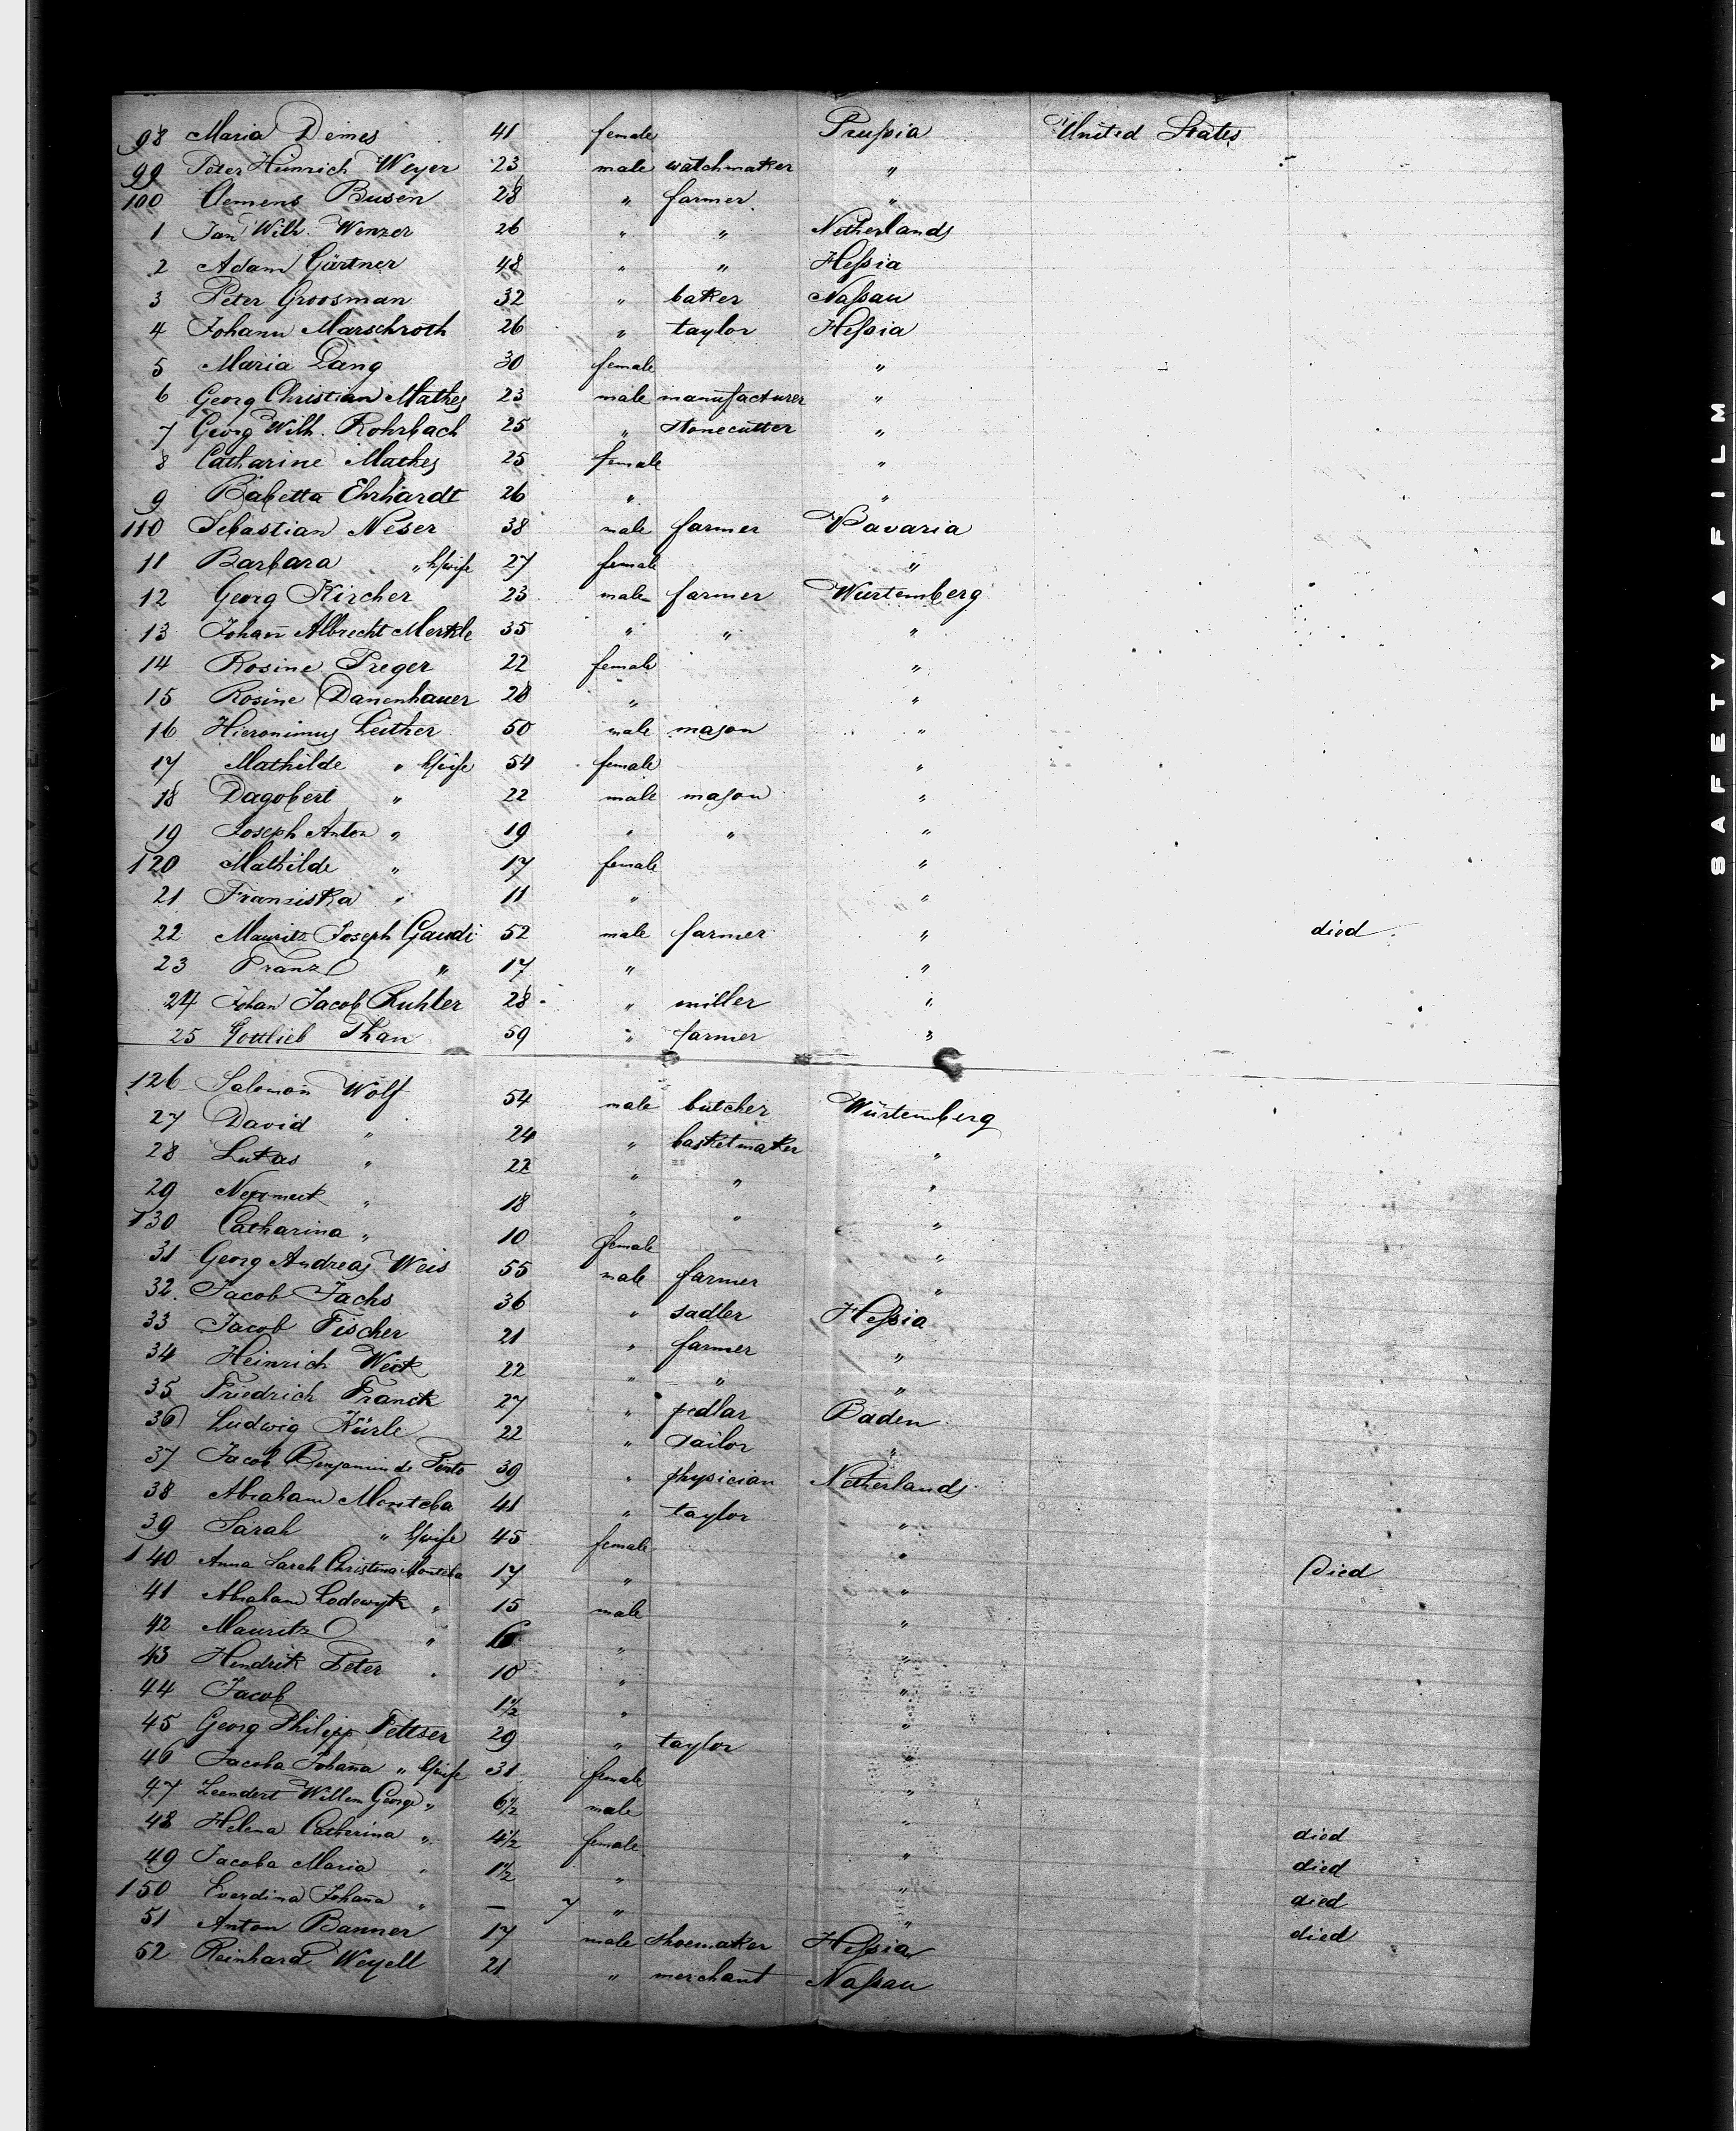 98 Maria Deimes 41 female Prußia United States
99 Peter Heinrich Weyer 23 male watchmaker "
100 Clemens Busen 28 " farmer "
1 Jan Wilh. Wenzer 26 " " Netherlands
2 Adam Gärtner 48 " " Heßia
3 Peter Groosman 32 " baker Naßau
4 Johann Marschroth 26 " taylor Heßia
5 Maria Lang 30 female "
6 Georg Christian Mathes 23 male manufacturer "
7 Georg Wilh. Rohrbach 25 " stonecutter "
8 Catharine Mathes 25 female "
9 Babetta Ehrhardt 26 " "
110 Sebastian Neser 38 male farmer Bavaria
11 Barbara " h/wife 27 female "
12 Georg Kircher 23 male farmer Würtemberg
13 Johan̄ Albrecht Merkle 35 " " "
14 Rosine Preger 22 female "
15 Rosine Danenhauer 28 " "
16 Hieronimus Leither 50 male mason "
17 Mathilde " h/wife 54 female "
18 Dagobert " 22 male mason "
19 Joseph Anton " 19 " " "
120 Mathilde " 17 female "
21 Franziska " 11 " "
22 Mauritz Joseph Gaudi 52 male farmer " died
23 Franz " 17 " "
24 Johan Jacob Ruhler 28 " miller "
25 Gottlieb Than 59 " farmer "
126 Salomon Wolf 54 male butcher Würtemberg
27 David " 24 " basketmaker "
28 Lukas " 22 " " "
29 " 18 " " "
130 Catharina " 10 female "
31 Georg Andreas Weis 55 male farmer "
32. Jacob Fachs 36 " sadler Heßia
33 Jacob Fischer 21 " farmer "
34 Heinrich Weik 22 " " "
35 Friedrich Franck 27 " pedlar Baden
36 Ludwig Kürle 22 " sailor "
37 Jacob Benjamin de Pinto 39 " physician Netherlands
38 Abraham Monteba 41 " taylor "
39 Sarah " h/wife 45 female "
140 Anna Sarah Christina Monteba 17 " " Died
41 Abraham Lodewyk " 15 male "
42 Mauritz " " "
43 Hendrik Peter " 10 " "
44 Jacob 1½ " "
45 Georg Philipp Feltser 29 " taylor "
46 Jacoba Johan̄a " h/wife 31 female "
47 Leendert Willem George " 6½ male "
48 Helena Catherina " 4½ female " died
49 Jacoba Maria " 1½ " " died
150 Everdina Johan̄a " – 7 " " died
51 Anton Banner 17 male shoemaker Heßia died
52 Reinhard Weyell 21 " merchant Naßau
SAFETY ▲ FILM